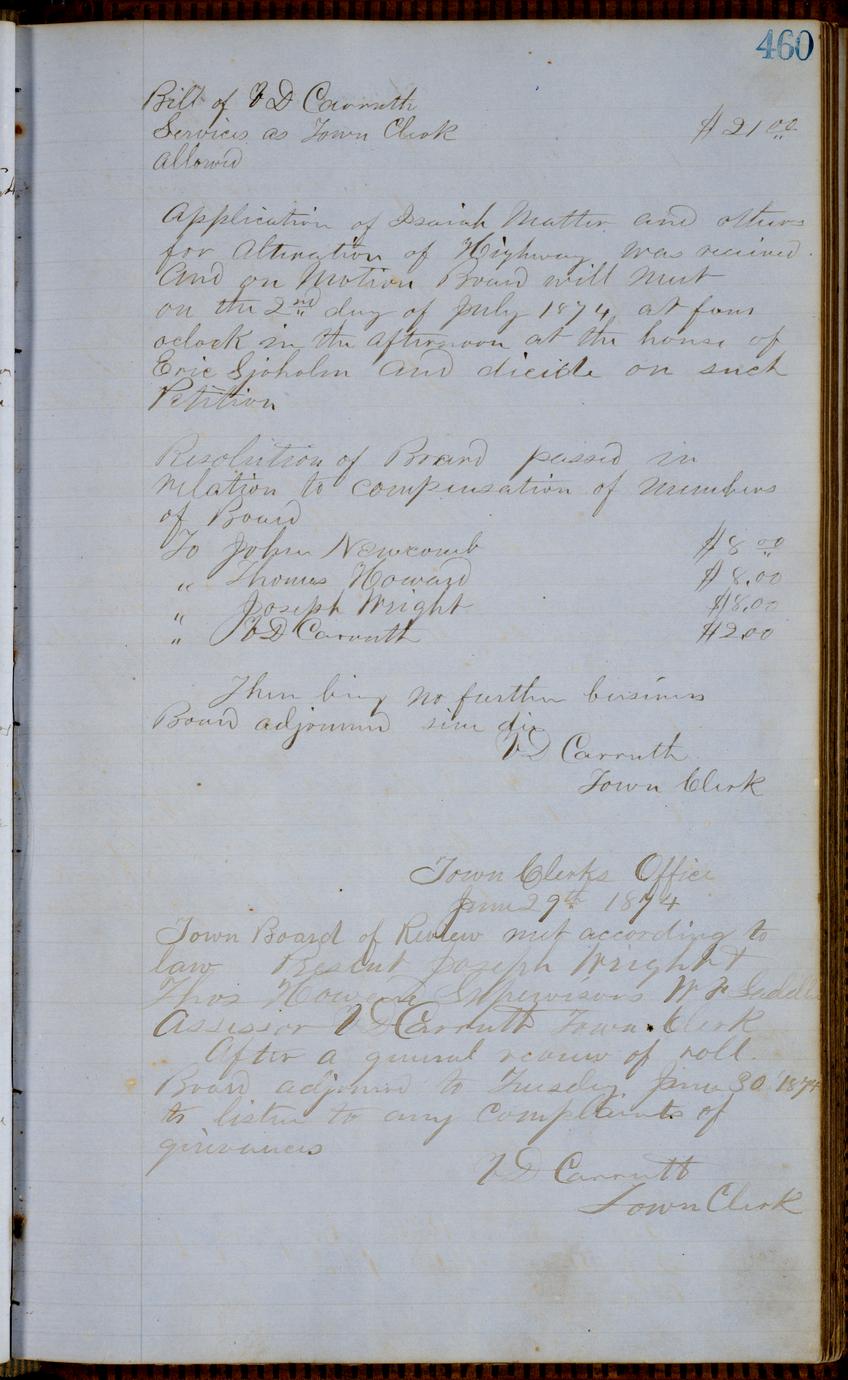 460
Bill of V D Carruth
Services as Town Clerk $21.00
allowed
Application of Isaiah Matter and others
for Alteration of Highway was received.
And on Motion Board will meet
on the 2nd day of July 1874, at four
oclock in the afternoon at the house of
Eric Sjoholm and dicide on such
Petition
Resolution of Board passed in
relation to compensation of members
of Board
To John Newcomb $8.00
" Thomas Howard $8.00
" Joseph Wright $18.00
" V D Carruth $2.00
There being no further business
Board adjourned sine die
V D Carruth
Town Clerk
Town Clerks Office
June 29th 1874
Town Board of Review met according to
law Present Joseph Wright
Thos Howard Supervisors W
Assessor V D Carruth Town Clerk
After a general review of roll.
Board adjorned to Tuesday June 30 1874
to listen to any complaints of
grievances
V D Carruth
Town Clerk